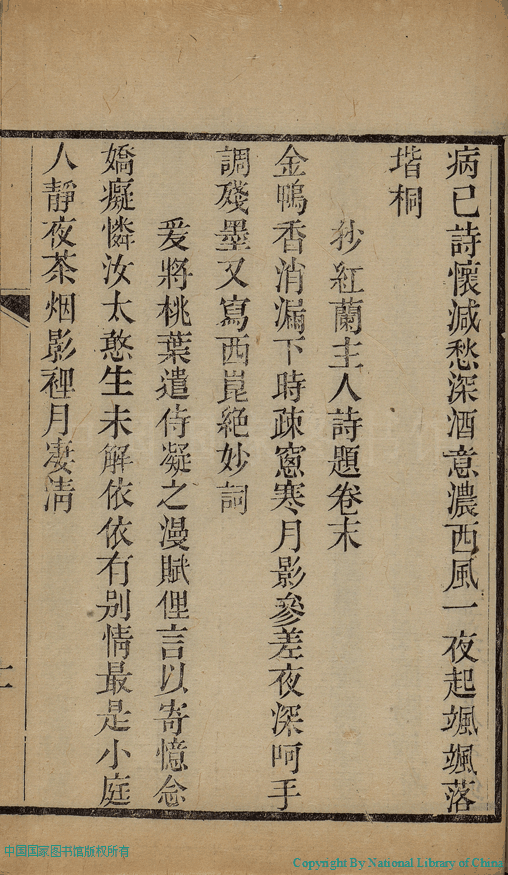 病已詩懷減愁深酒意濃西風一夜起颯颯落
堦桐
抄紅蘭主人詩題卷末
金鴨香消漏下時疎窻寒月影參差夜深呵手
調殘墨又寫西崑絶妙詞
爰將桃葉遣侍凝之漫賦俚言以寄憶念
嬌癡憐汝太憨生未解依依有别情最是小庭
人靜夜茶烟影裡月凄清
中国国家图书馆版权所有
Copyright By National Library of China